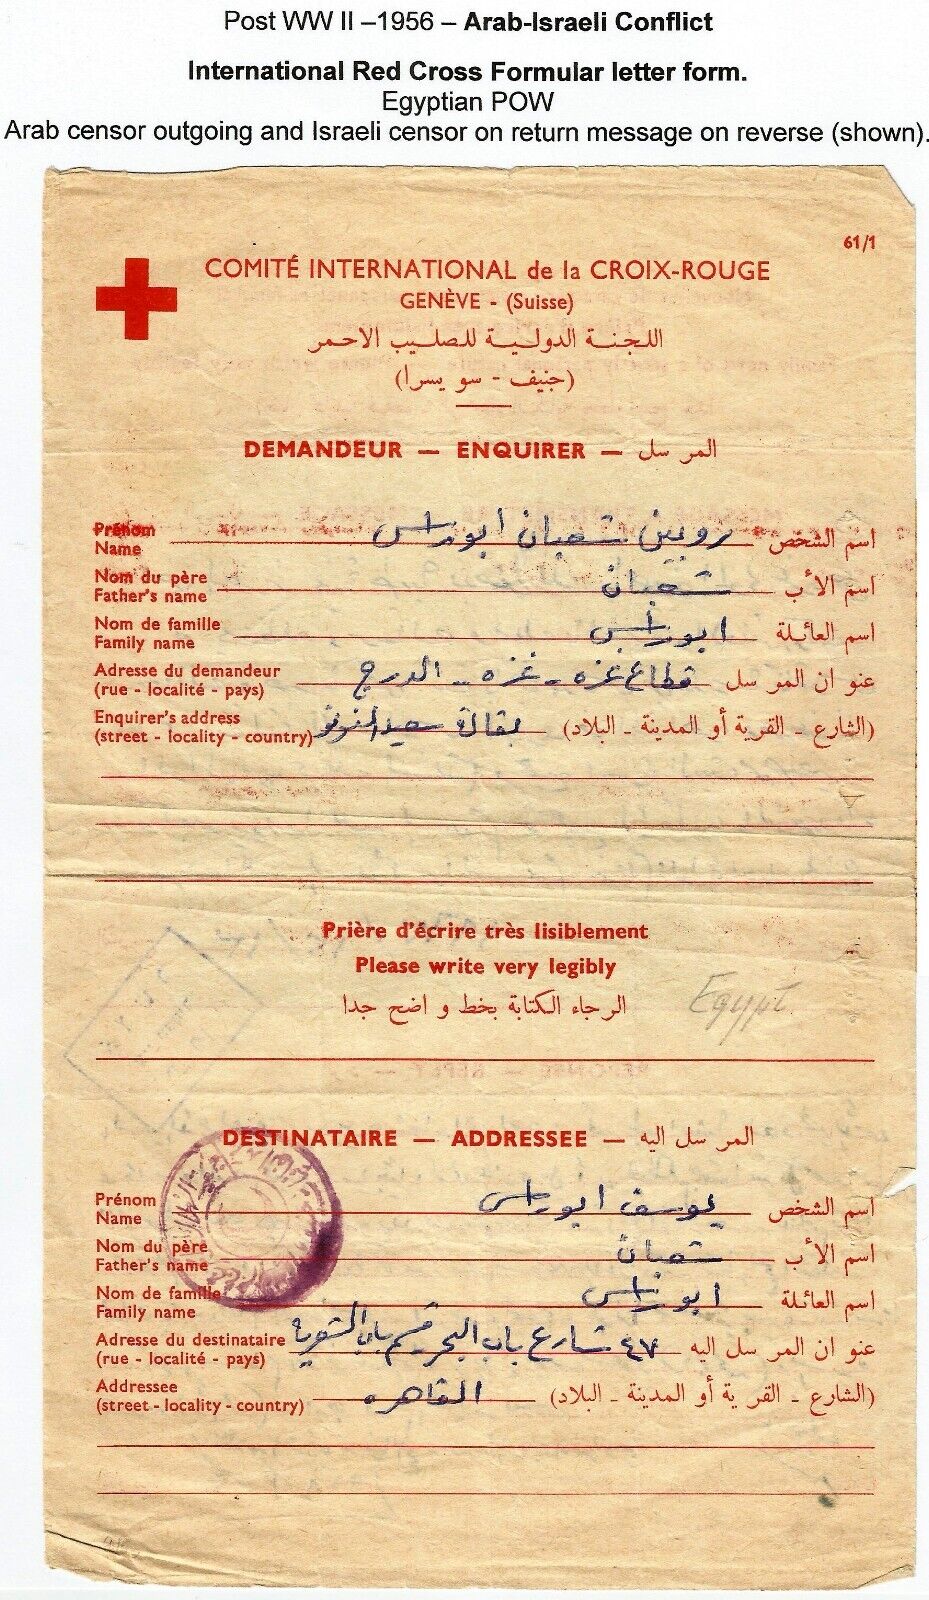 Post WW II –1956 – Arab-Israeli Conflict
International Red Cross Formular letter form.
Egyptian POW
Arab censor outgoing and Israeli censor on return message on reverse (shown).
61/1
COMITÉ INTERNATIONAL de la CROIX-ROUGE
GENÈVE - (Suisse)
اللجنة الدولية للصليب الاحمر
(جنيف - سويسرا)
DEMANDEUR — ENQUIRER — المرسل
Prénom
Name شعبان ابوراس اسم الشخص
Nom du père
Father's name شعبان اسم الأب
Nom de famille
Family name ابوراس اسم العائلة
Adresse du demandeur
(rue - localité - pays) قطاع غزه - غزه - الدرج عنوان المرسل
Enquirer's address
(street - locality - country) بقالة سعيد (الشارع - القرية أو المدينة - البلاد)
Prière d'écrire très lisiblement
Please write very legibly
الرجاء الكتابة بخط واضح جدا
Egypt.
DESTINATAIRE — ADDRESSEE — المرسل اليه
Prénom
Name يوسف ابوراس اسم الشخص
Nom du père
Father's name شعبان اسم الأب
Nom de famille
Family name ابوراس اسم العائلة
Adresse du destinataire
(rue - localité - pays) ٤٧ شارع باب البحر قسم باب الشعرية عنوان المرسل اليه
Addressee
(street - locality - country) القاهره (الشارع - القرية أو المدينة - البلاد)